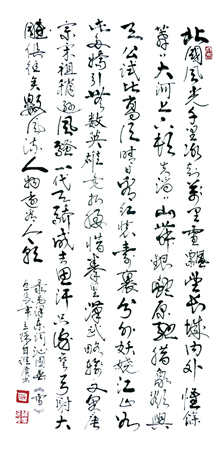 北國風光千里冰封萬里雪飄望長城内外惟餘
莽莽大河上下頓失滔滔山舞銀蛇原馳蜡象欲與
天公試比高須晴日看紅裝素裹分外妖嬈江山如
此多嬌引無數英雄競折腰惜秦皇漢武略輸文采唐
宗宋祖稍遜風騷一代天驕成吉思汗只識彎弓射大
雕俱往矣數風流人物還看今朝
录毛澤東詞沁園春《雪》